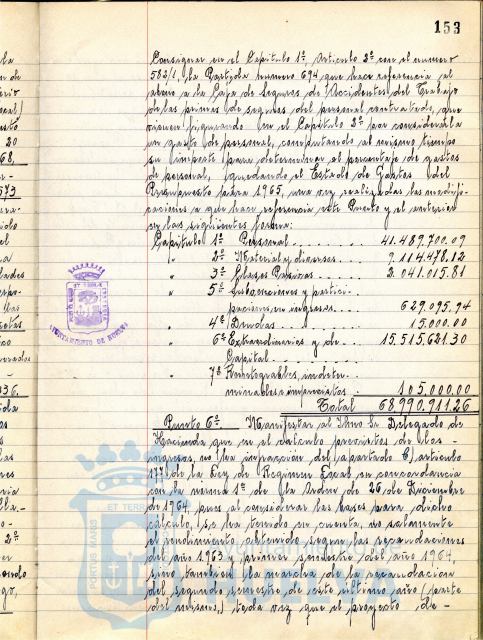 153
Consignar en el Capítulo 1º, Artículo 3º con el número
583/1, la Partida número 694, que hace referencia al
abono a la Caja de Seguros de Accidentes del Trabajo
de las primas de seguros del personal contratado, que
figurando en el Capítulo 2º por considerarla
un gasto de personal, computando al mismo tiempo
su importe para determinar el porcentaje de gastos
de personal, quedando el Estado de Gastos del
Presupuesto para 1965, una vez realizadas las modifi-
caciones a que hace referencia este Punto y el anterior
en la siguiente forma:
Capítulo 1º Personal . . . . . . . 41.489.700.09
" 2º Material y diversos . . . 9.114.478.12
" 3º Clases Pasivas . . . . 2.041.015.81
" 5º Subvenciones y partici-
paciones en ingresos . . . 629.095.94
" 4º Deudas . . . . . . . 15.000.00
" 6º Extraordinarios y de
Capital . . . . . . . 15.515.621.30
" 7º Reintegrables, indeter-
minables e imprevistos . 105.000.00
Total 68.990.911.26
Punto 6º Manifestar al Ilmo Sr Delegado de
Hacienda que en el cálculo previsto de los
ingresos, no hay infracción del apartado C) artículo
de la Ley de Régimen Local en concordancia
con la norma 1ª de la Orden de 26 de Diciembre
de 1964 pues al considerar las bases para dicho
cálculo, se ha tenido en cuenta, no solamente
el rendimiento obtenido según las recaudaciones
del año 1963 y primer semestre del año 1964,
sino también la marcha de la recaudación
del segundo semestre de este último año (parte
del mismo,) toda vez que el proyecto de-
AYUNTAMIENTO DE HUELVA
PORTUS MARIS
ET TERRAE